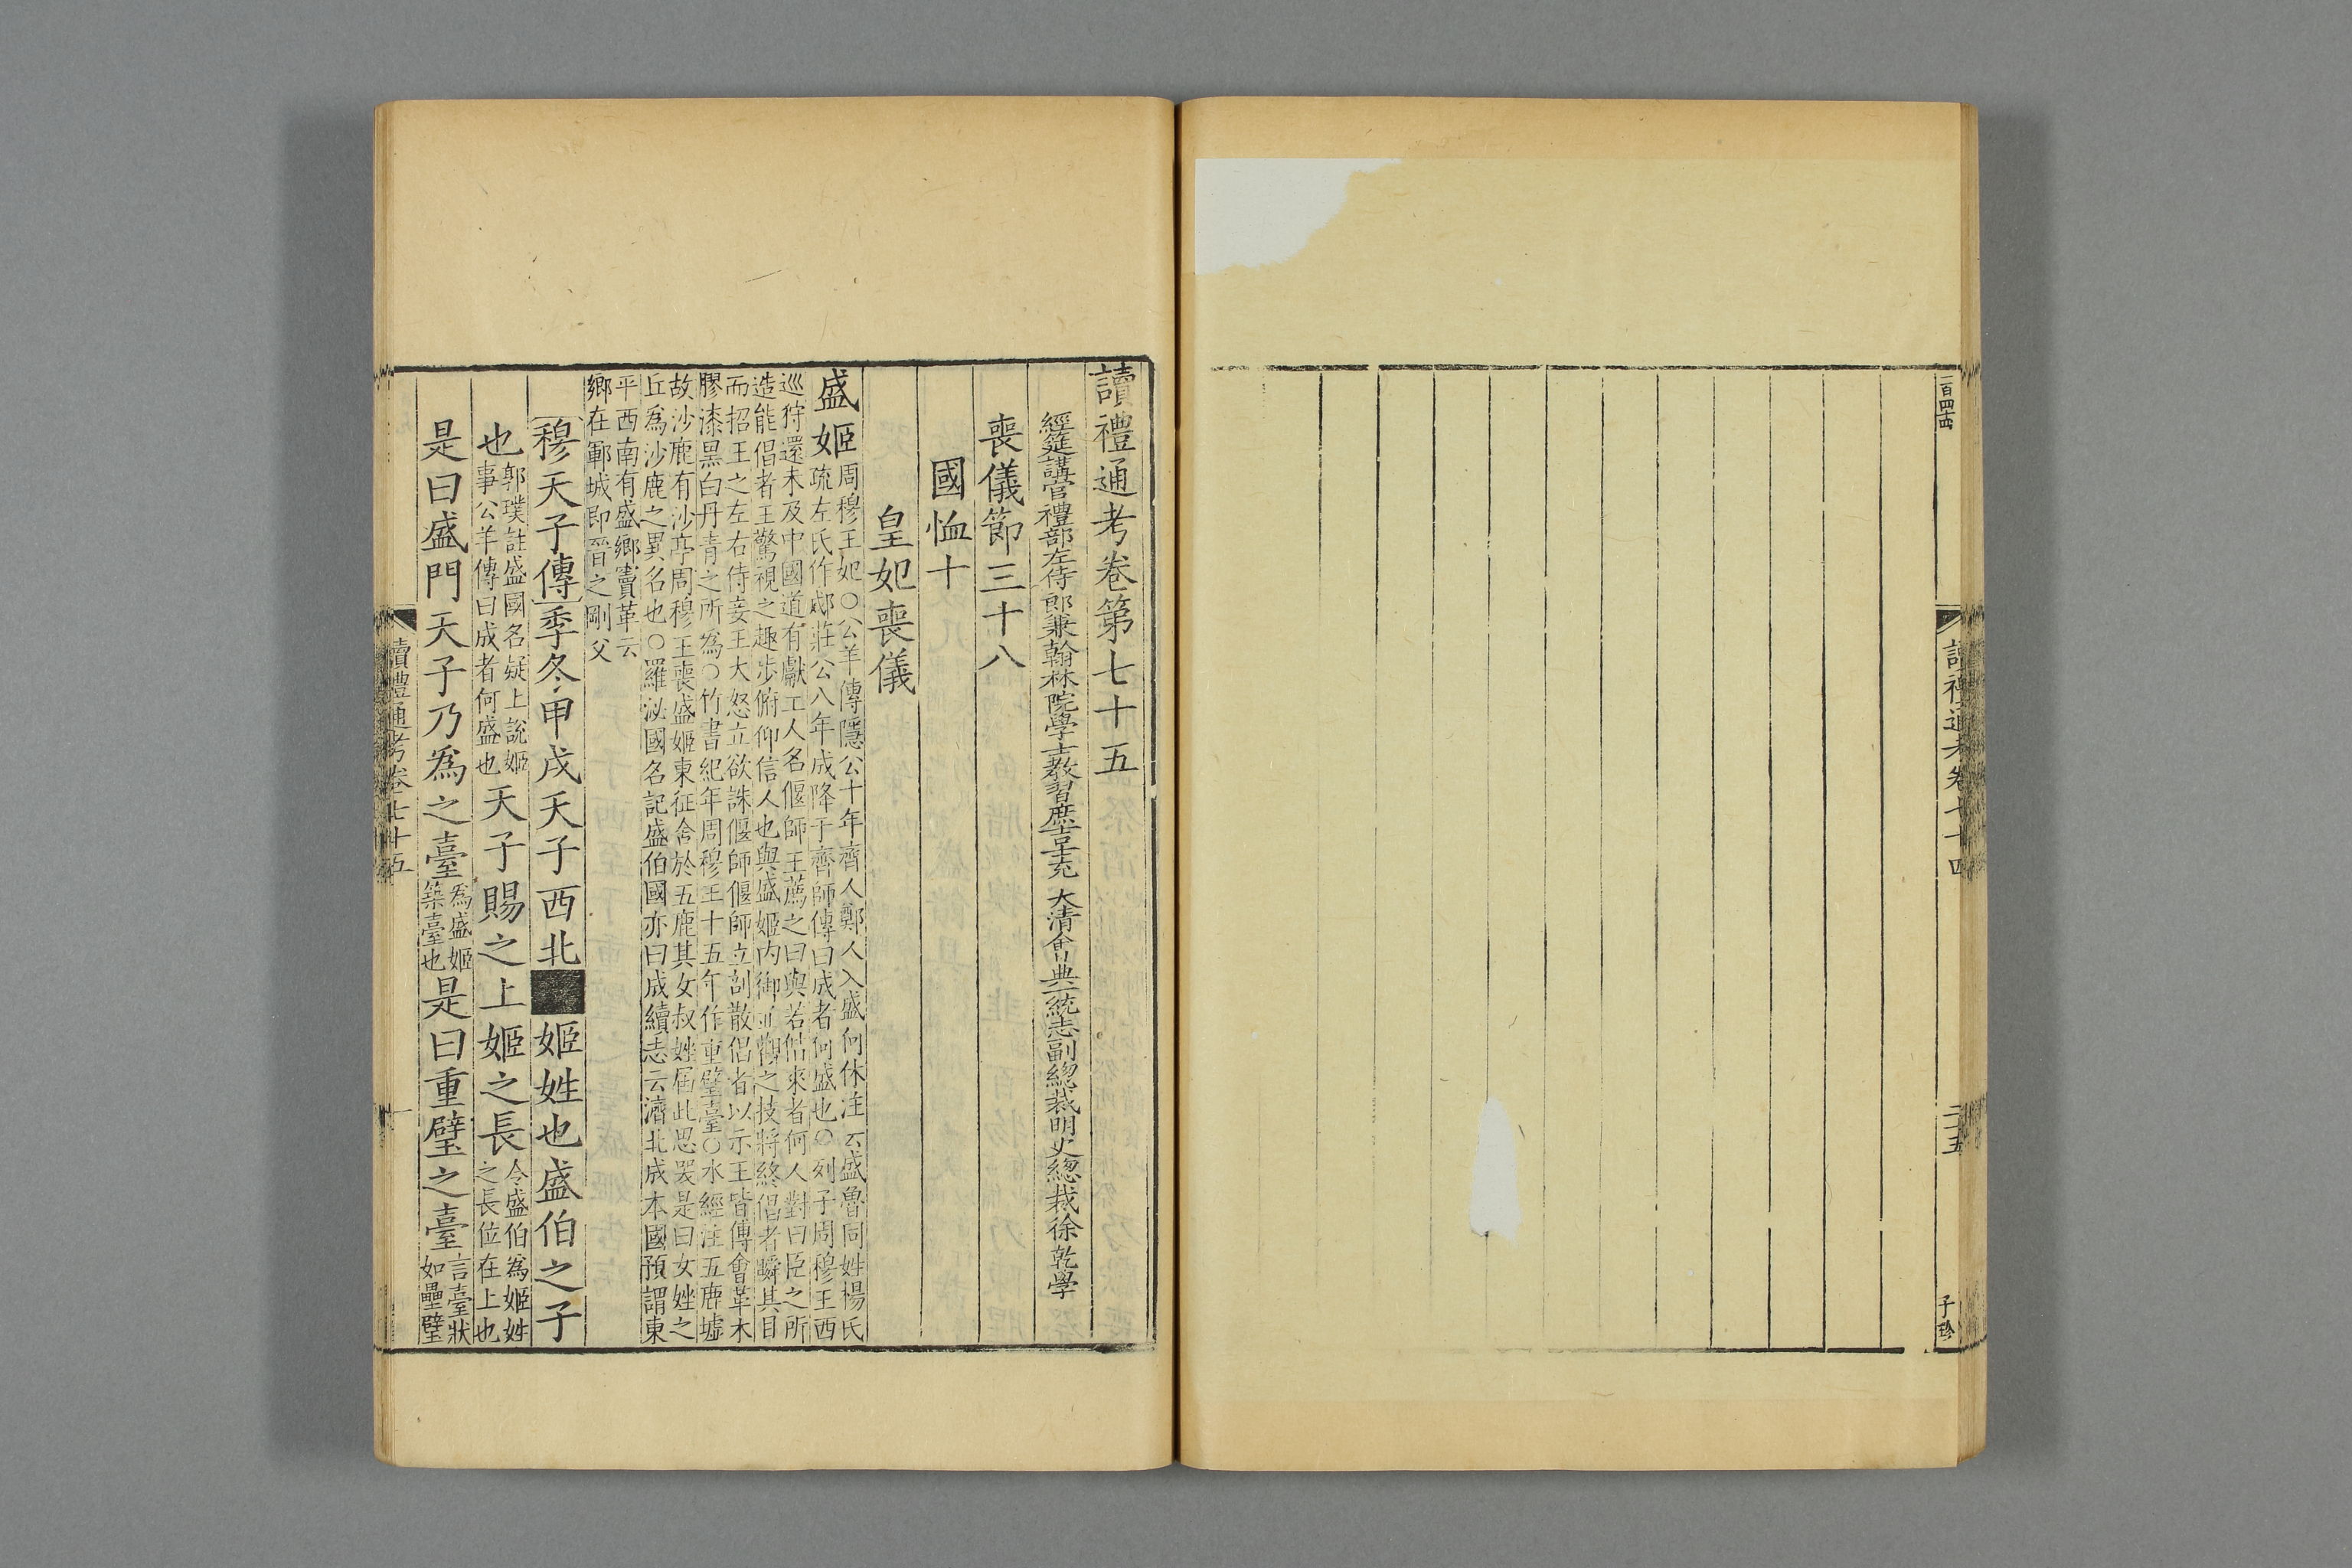 一百四十四
讀禮通考卷七十四
二十五
子珍
讀禮通考卷第七十五
經筵講官禮部左侍郎兼翰林院學士教習庶吉士充 大清會典一統志副總裁明史總裁徐乾學
喪儀節三十八
國恤十
皇妃喪儀
盛姬
周穆王妃○公羊傳隱公十年齊人鄭人入盛何休注云盛魯同姓楊氏
疏左氏作郕莊公八年成降于齊師傳曰成者何盛也○列子周穆王西
巡狩還未及中國道有獻工人名偃師王薦之曰與若偕來者何人對曰臣之所
造能倡者王驚視之趣步俯仰信人也與盛姬內御並觀之技將終倡者瞬其目
而招王之左右侍妾王大怒立欲誅偃師偃師立剖散倡者以示王皆傅會革木
膠漆黑白丹青之所為○竹書紀年周穆王十五年作重璧臺○水經注五鹿墟
故沙鹿有沙亭周穆王喪盛姬東征舍於五鹿其女叔姓屆此思哭是曰女姓之
丘為沙鹿之異名也○羅泌國名記盛伯國亦曰成續志云濟北成本國預謂東
平西南有盛鄉竇革云
鄉在鄆城即晉之剛父
穆天子傳季冬甲戌天子西北■姬姓也盛伯之子
也
郭璞註盛國名疑上說姬
事公羊傳曰成者何盛也
天子賜之上姬之長
令盛伯為姬姓
之長位在上也
是曰盛門天子乃為之臺
為盛姬
築臺也
是曰重璧之臺
言臺狀
如壘璧
讀禮通考卷七十五
一